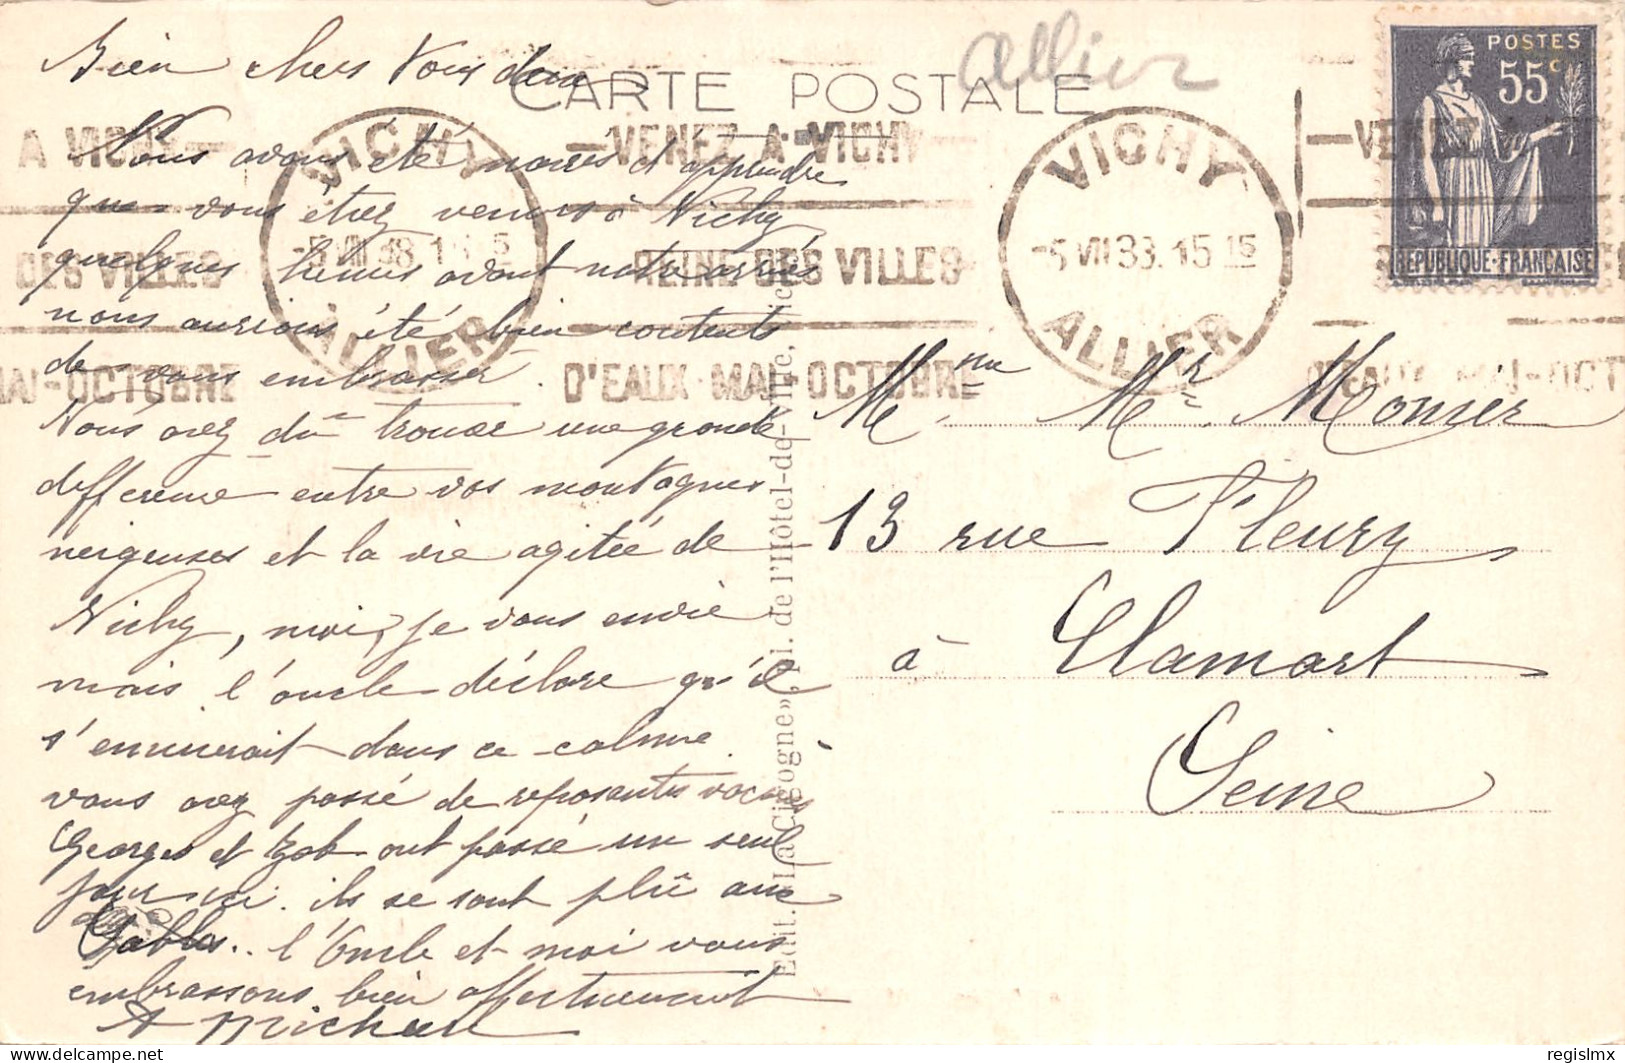 Bien chers Vous deux
CARTE POSTALE
Allier
POSTES
55c
REPUBLIQUE-FRANÇAISE
A VICHY
DES VILLES
MAI-OCTOBRE
VICHY
ALLIER
VENEZ A VICHY
REINE DES VILLES
D'EAUX MAI-OCTOBRE
VICHY
-5 VII 38. 15 15
ALLIER
Nous avons été navrés d'apprendre
que vous étiez venus à Vichy
quelques heures avant notre arrivée
nous aurions été bien contents
de vous embrasser.
Vous avez dû trouver une grande
difference entre vos montagnes
neigeuses et la vie agitée de
Vichy, moi, je vous envie
mais l'oncle déclare qu'il
s'ennuierait dans ce calme.
vous avez passé de reposantes vacances
Georges et Bob ont passé un seul
jour ici. ils se sont plû aux
Sables.. l'Oncle et moi vous
embrassons bien affectueusement
A Michau
Edit. "La Cigogne", pl. de l'Hôtel-de-Ville, Vichy
Mme Mr Monier
13 rue Fleury
à Clamart
Seine
delcampe.net
regislmx